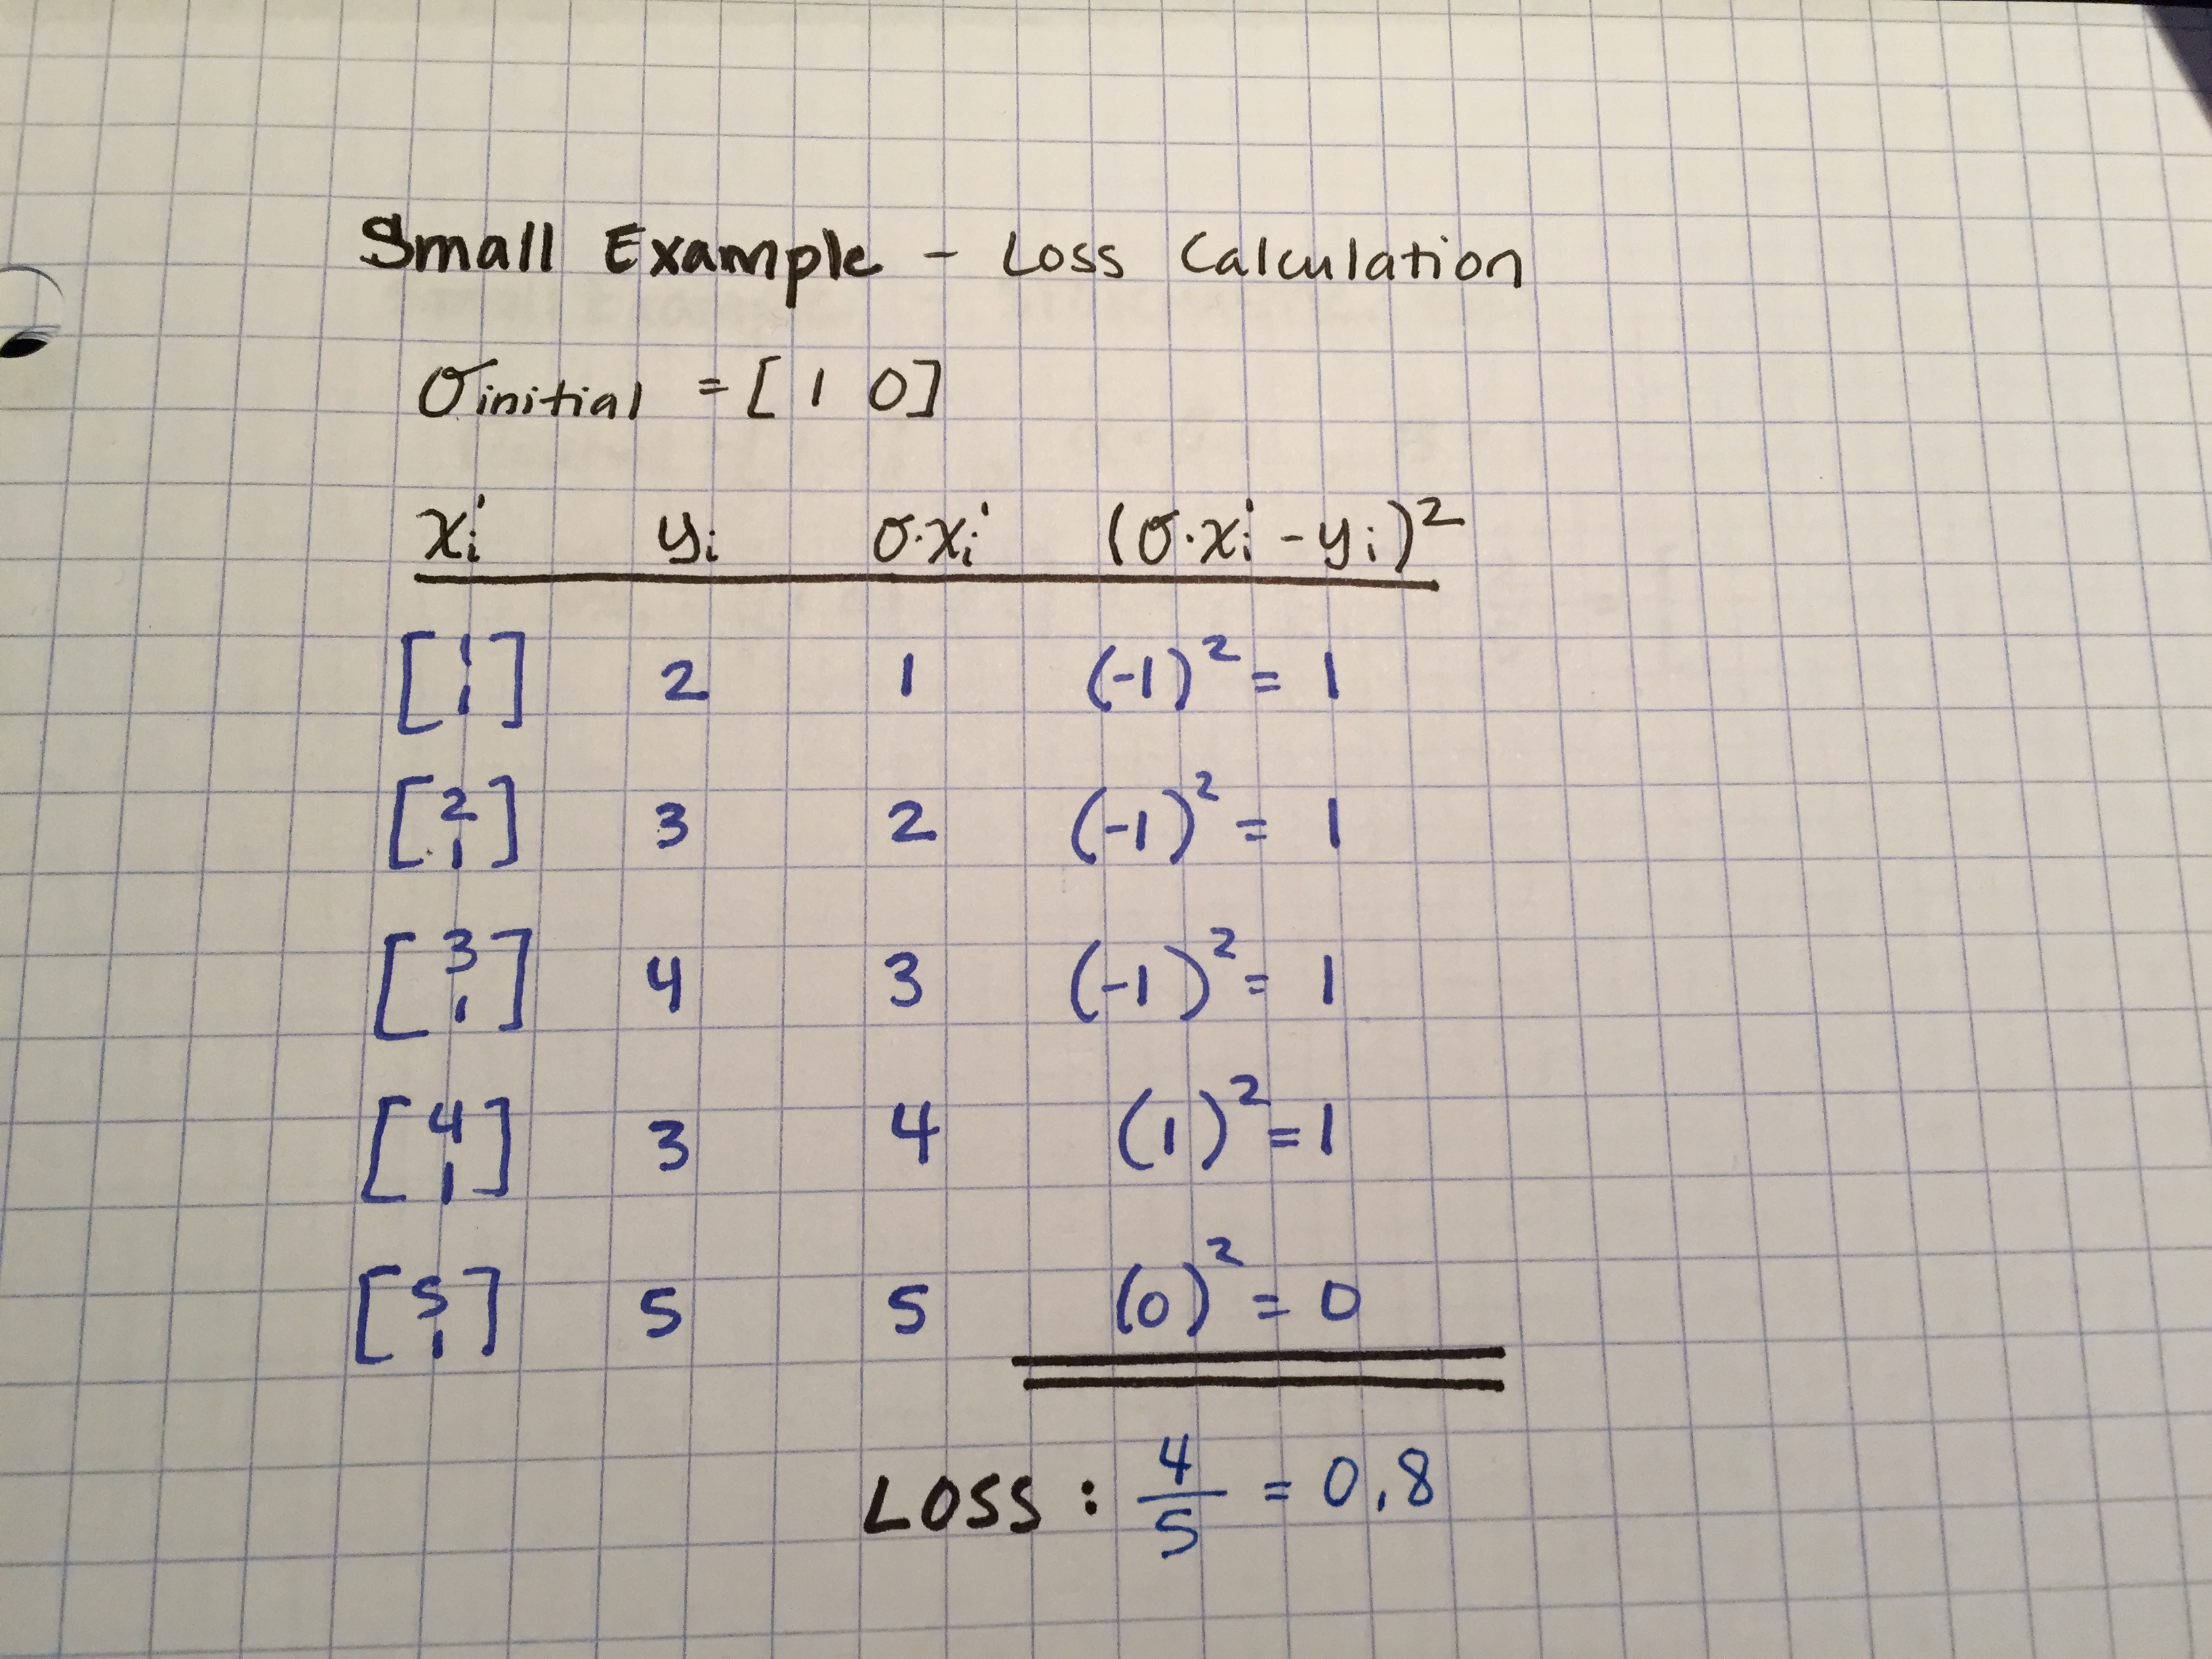 Small Example - Loss Calculation
σinitial = [ 1 0 ]
xi' yi σ·xi' (σ·xi' - yi)²
[1 1] 2 1 (-1)² = 1
[2 1] 3 2 (-1)² = 1
[3 1] 4 3 (-1)² = 1
[4 1] 3 4 (1)² = 1
[5 1] 5 5 (0)² = 0
LOSS : 4/5 = 0,8